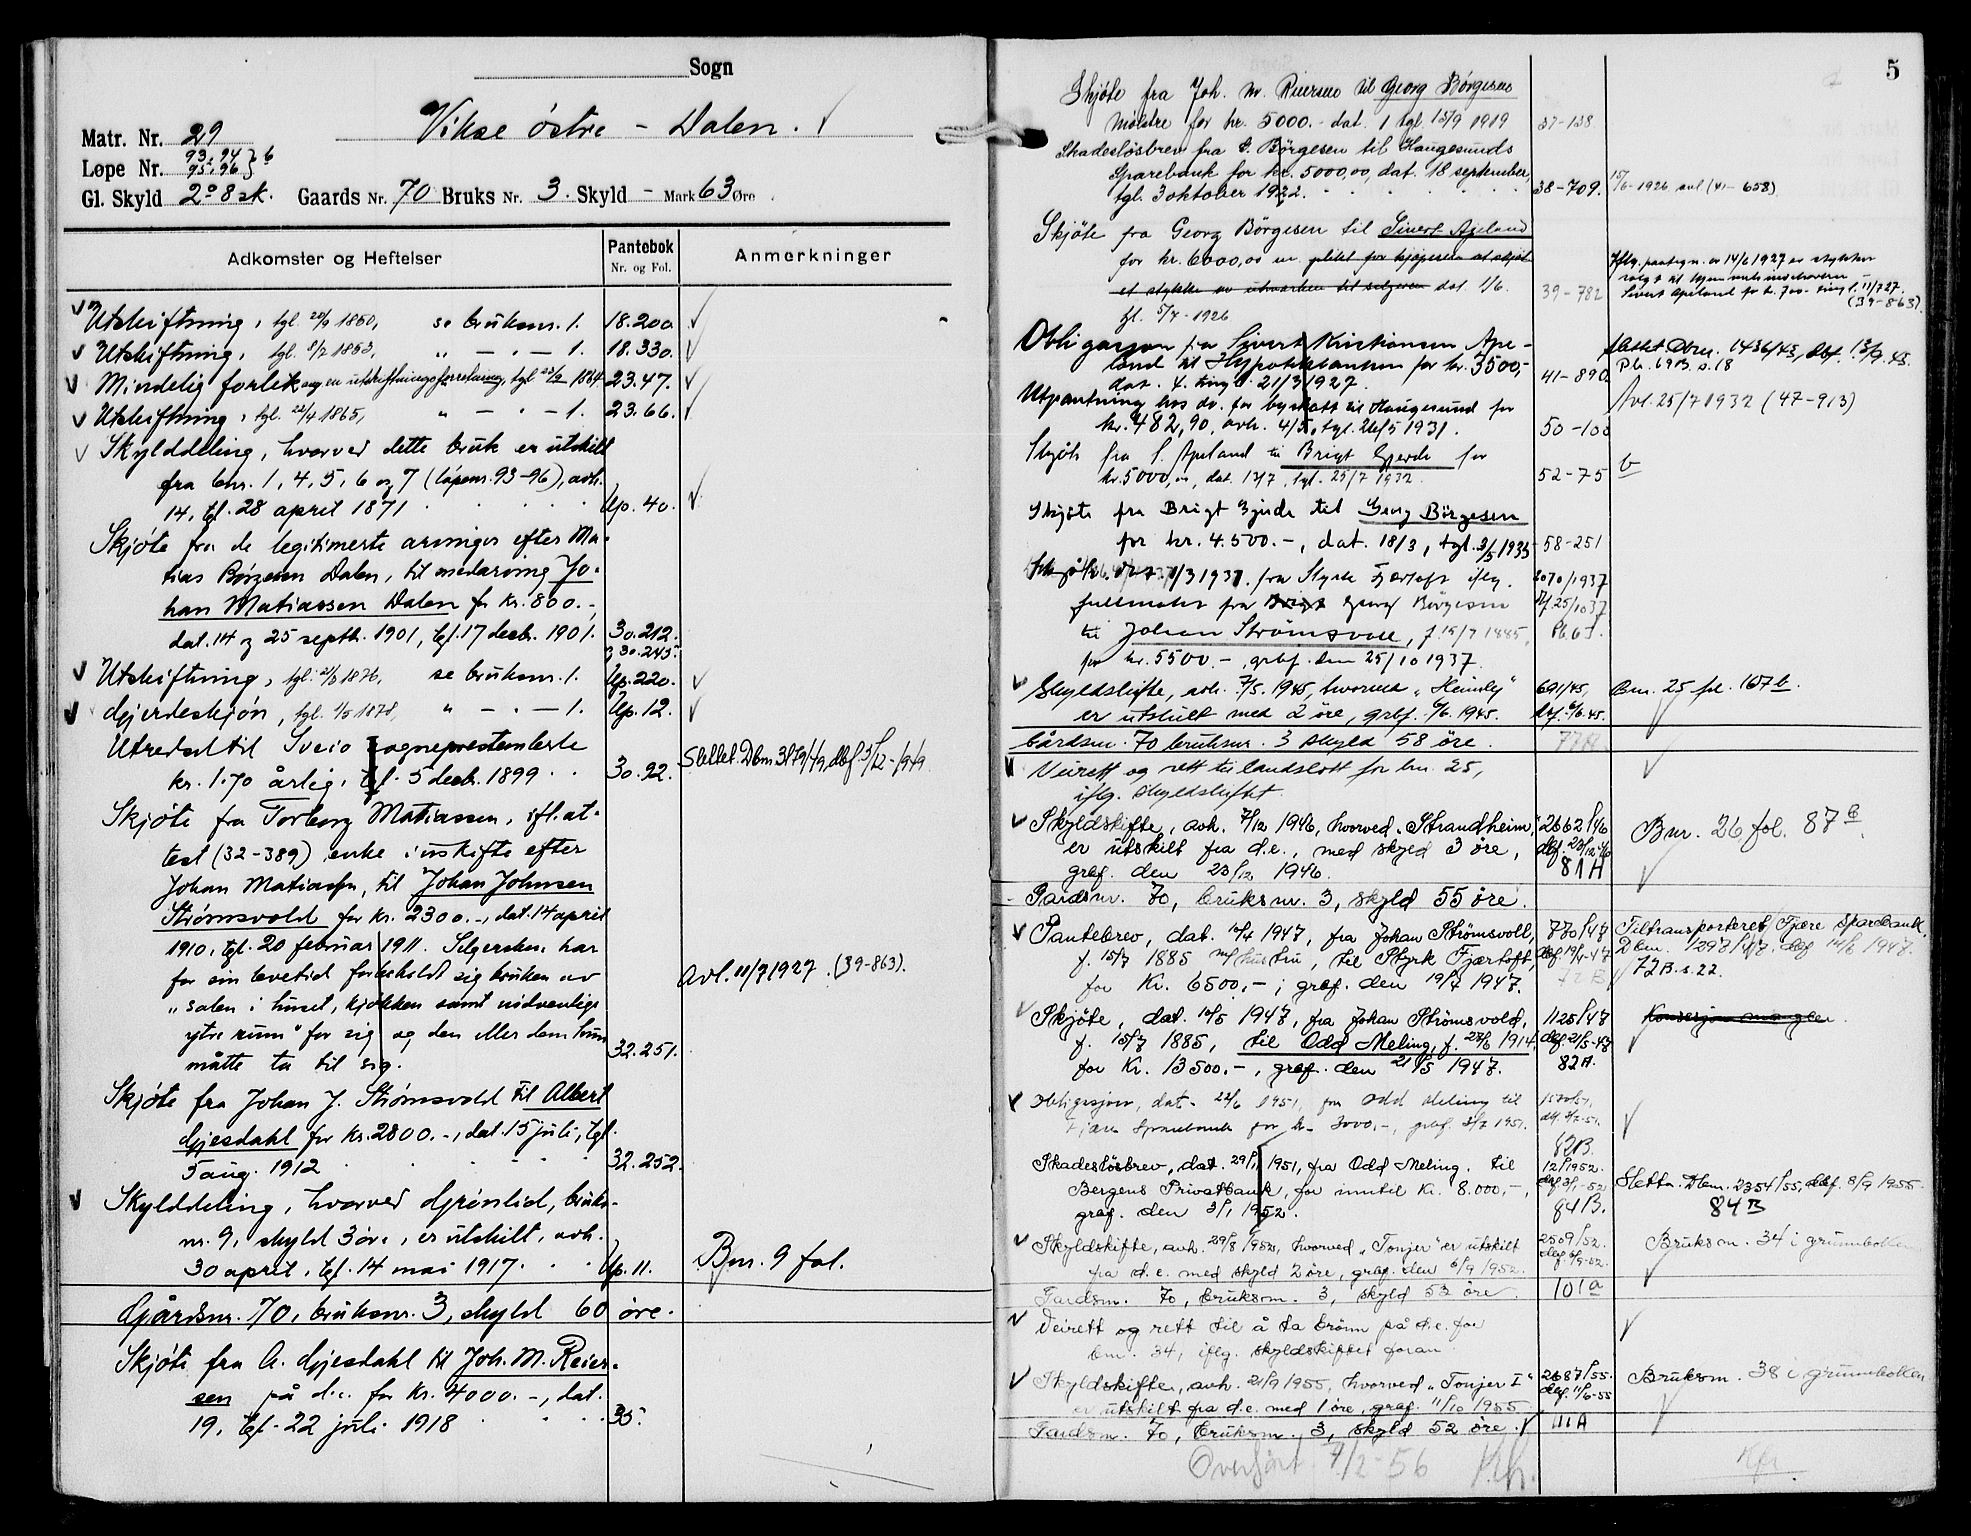 Sogn
Vikse østre - Dalen.
Matr. Nr. 29
Løpe Nr. 93, 94 95, 96 } b
Gl. Skyld 2 o 8 sk. Gaards Nr. 70 Bruks Nr. 3. Skyld - Mark 63 Øre
Adkomster og Heftelser Pantebok Nr. og Fol. Anmerkninger
Utskiftning, tgl. 1860, se bruksnr. 1. 18.200.
Utskiftning, tgl. 1863, " - " - 1. 18.330.
Mindelig forlik ang en utskiftningsforretning, tgl 1864 23.47.
Utskiftning, tgl. 22/4 1865, " - " - 1. 23.66.
Skylddeling, hvorved dette bruk er utskilt
fra bnr. 1, 4, 5, 6 og 7 (løpenr. 93-96), avh.
14, tgl. 28 april 1871 Up. 40.
Skjøte fra de legitimerte arvinger efter Ma-
tias Børgesen Dalen, til medarving Jo-
han Matiassen Dalen for kr. 800.-,
dat. 14 og 25 septb. 1901, tgl. 17 decb. 1901. 30.212.
og 30.245.
Utskiftning, tgl. 1876, se bruksnr. 1. Up. 220.
Gjerdeskjøn, tgl. 1/5 1878, " - " - 1. Up. 12.
Utredsel til Sveio sogneprestembede
kr. 1.70 årlig, tgl. 5 decb. 1899 30.92. Slettet. Dbnr 3179/49, dbf. 3/12-1949
Skjøte fra Torborg Matiassen, ifl. at-
test (32-389) enke i uskifte efter
Johan Matiassen, til Johan Johnsen
Strømsvold for kr. 2300.-, dat. 14 april
1910, tgl. 20 februar 1911. Selgersken har
for sin levetid forbeholdt sig bruken av
"salen i huset, kjøkken samt nødvendige Avl. 11/7 1927. (39-863).
ytre rum" for sig og den eller dem hun
måtte ta til sig. 32.251.
Skjøte fra Johan J. Strømsvold til Albert
Gjesdahl for kr. 2800.-, dat. 15 juli, tgl.
5 aug. 1912 32.252.
Skylddeling, hvorved Grønlid, bruks-
nr. 9, skyld 3 øre, er utskilt, avh.
30 april, tgl. 14 mai 1917. Up. 11. Bnr. 9 fol.
Gårdsnr. 70, bruksnr. 3, skyld 60 øre.
Skjøte fra A. Gjesdahl til Joh. M. Reier-
sen på d.e. for kr. 4000.-, dat.
19, tgl. 22 juli 1918 35.
5
Skjøte fra Joh. M. Reiersen til Georg Børgesen
Møkstre for kr. 5000.- dat. 1 tgl. 15/9 1919 37-138
Skadesløsbrev fra G. Børgesen til Haugesunds
Sparebank for kr. 5000,00, dat. 18 september,
tgl. 3 oktober 1922. 38-709. 15/6-1926 avl (41-658)
Skjøte fra Georg Børgesen til Sivert Apeland
for kr. 6000,00 m. plikt for kjøperen at skjøt
et stykke av utmarken til selgeren dat. 1/6. 39-782
tgl. 5/7-1926
Iflg. paategn. av 14/6 1927 er stykket
solgt til hjemmelsindehaveren
Sivert Apeland for kr. 700.- tingl. 11/7 27.
(39-863).
Obligasjon fra Sivert Kristiansen Ape-
land til Hypotekbanken for kr. 3500,-
dat. 4. tingl. 21/3 1927. 41-890
slettet Dbnr. 1436/43, dbf. 13/9. 43.
Pb. 69B. s. 18
Utpantning hos do. for byskatt til Haugesund for
kr. 482,90, avh. 4/5, tgl. 26/5 1931. 50-100 Avl. 25/7 1932 (47-913)
Skjøte fra S. Apeland til Brigt Gjerde for
kr. 5000,00, dat. 13/7, tgl. 25/7 1932. 52-75
Skjøte fra Brigt Gjerde til Georg Børgesen
for kr. 4.500.-, dat. 18/3, tgl. 3/5 1935 58-251
Skjøte 1/3 1937. fra Styrk Fjærtoft iflg. 2070/1937
fullmakt fra Brigt Georg Børgesen Dbf. 25/10 37
til Johan Strømsvoll, f. 15/7 1885, Pb. 63.
for kr. 5500.-, grbf. den 25/10 1937.
Skyldskifte, avh. 7/5. 1945, hvorved "Heimly" 691/45, Bnr. 25 fol. 167b.
er utskilt med 2 øre, grbf. 6/6. 1945. Dbf. 6/6. 45.
Gårdsnr. 70 bruksnr. 3 skyld 58 øre. 77A.
Veirett og rett til landslott for bnr. 25,
iflg. skyldskiftet.
Skyldskifte, avh. 7/12 1946, hvorved "Strandheim" 2662/46 Bnr. 26 fol. 87 b.
er utskilt fra d.e., med skyld 3 øre, dbf. 23/12-46
graf. den 23/12 1946. 81A
Gardsnr. 70, bruksnr. 3, skyld 55 øre.
Pantebrev, dat. 12/4 1947, fra Johan Strømsvoll, 770/47 Tiltransportert Fjære Sparebank,
f. 15/7 1885 m/hustru, til Styrk Fjærtoft, dbf. 19/4-47 Dbnr. 1297/47, dbf. 14/6 1947.
for Kr. 6500,-; graf. den 19/4 1947. 72B 72B. s. 22.
Skjøte, dat. 10/5 1947, fra Johan Strømsvold, 1125/47 Konsesjon mangler.
f. 15/7 1885, til Odd Meling, f. 1914, dbf. 21/5-47
for Kr. 13500.-, graf. den 21/5 1947. 82A.
Obligasjon, dat. 22/6 1951, fra Odd Meling til
Fjære Sparebank for kr. 3000,-, graf. 2/7 1951. dbf. 2/7-51.
82B.
Skadesløsbrev, dat. 29/ 1951, fra Odd Meling. til 12/1952.
Bergens Privatbank, for inntil Kr. 8.000,-, dbf 3/1-52 Slettn. Dbnr. 2354/55, dbf. 8/9 1955.
graf. den 3/1 1952. 84B. 84B
Skyldskifte, avh. 29/8 1952, hvorved "Tonjer" er utskilt 2509/52. Bruksnr. 34 i grunnboken
fra d.e. med skyld 2 øre, graf. den 6/9 1952. dbf. 6/9-52.
Gardsnr. 70, bruksnr. 3, skyld 53 øre. 101a
Veirett og rett til å ta brønn på d.e. for
bnr. 34, iflg. skyldskiftet foran
Skyldskifte, avh. 21/9 1955, hvorved "Tonjer I" 2687/55. Bruksnr. 38 i grunnboken
er utskilt fra d.e. med 1 øre, graf. 11/10 1955
Gardsnr. 70, bruksnr. 3, skyld 52 øre. 111A
Overført 7/2-56